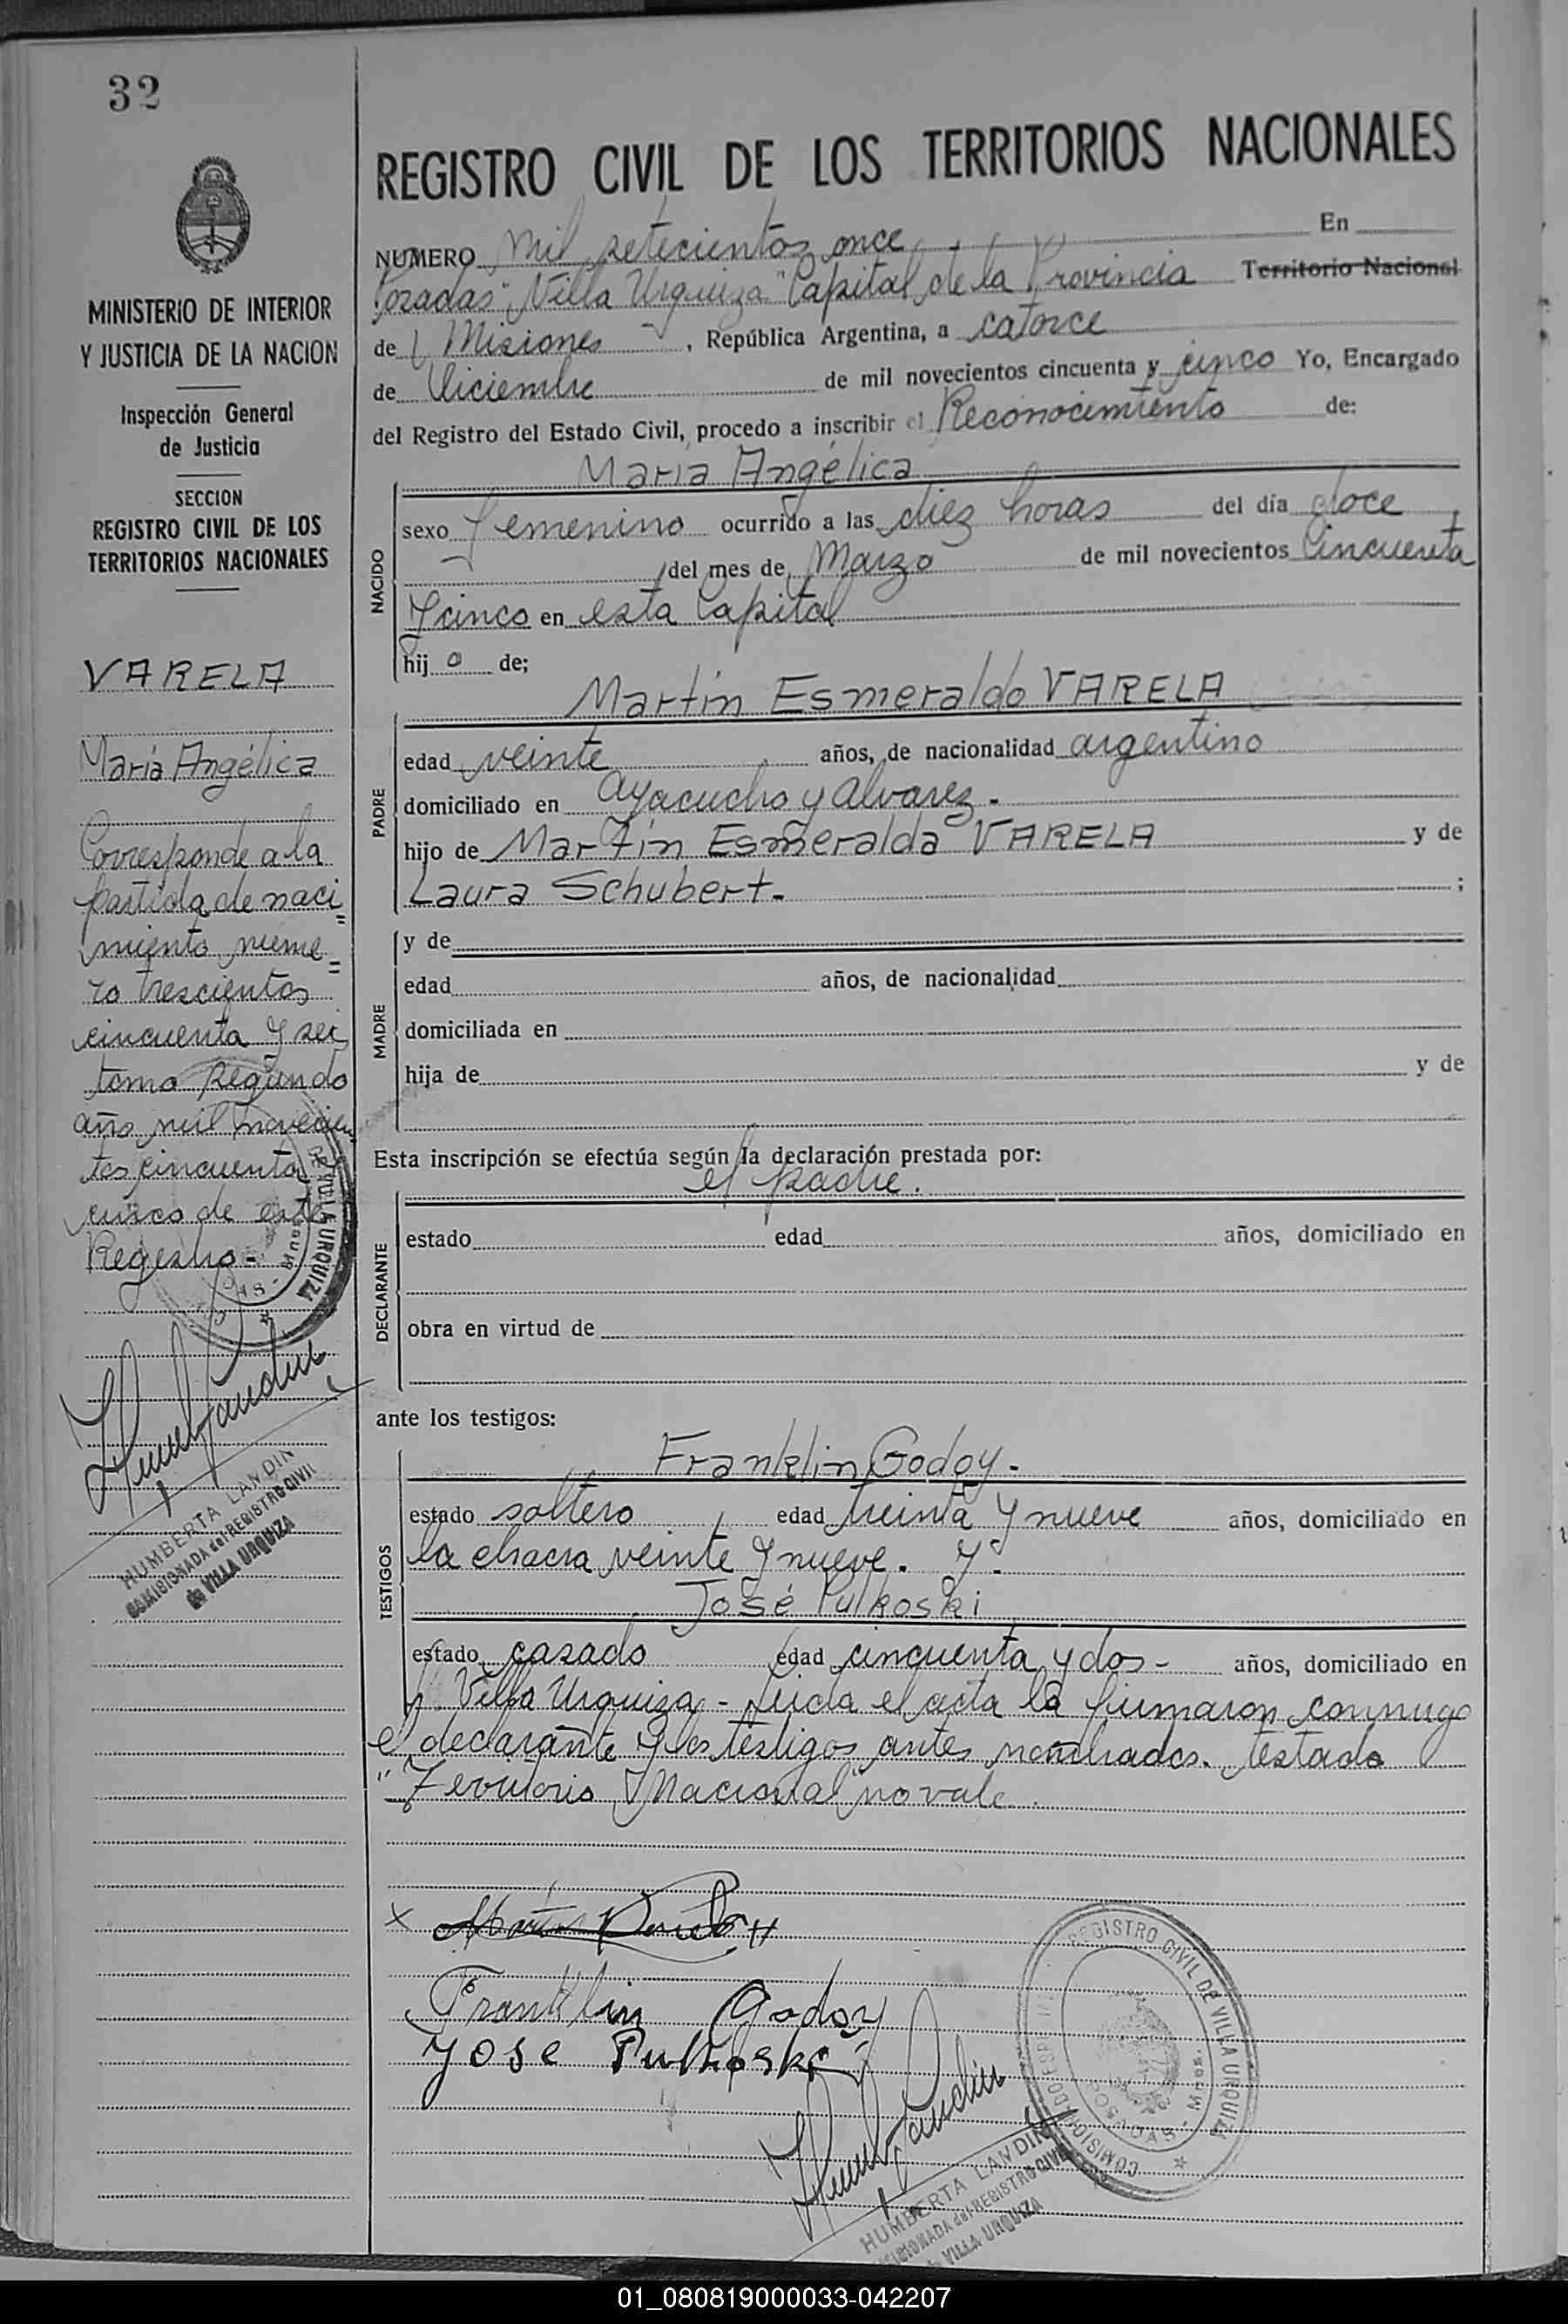 32
MINISTERIO DE INTERIOR
Y JUSTICIA DE LA NACION
Inspección General
de Justicia
SECCION
REGISTRO CIVIL DE LOS
TERRITORIOS NACIONALES
VARELA
María Angélica
Corresponde a la
partida de naci=
miento nume=
ro trescientos
cincuenta y seis
tomo segundo
año mil novecien
tos cincuenta y
cinco de este
Registro-
HUMBERTA LANDIN
COMISIONADA del REGISTRO CIVIL
de VILLA URQUIZA
REGISTRO CIVIL DE LOS TERRITORIOS NACIONALES
NUMERO Mil setecientos once En
Posadas "Villa Urquiza" Capital de la Provincia Territorio Nacional
de Misiones, República Argentina, a catorce
de Diciembre de mil novecientos cincuenta y cinco Yo, Encargado
del Registro del Estado Civil, procedo a inscribir el Reconocimiento de:
María Angélica
NACIDO
sexo femenino ocurrido a las diez horas del día doce
del mes de Marzo de mil novecientos Cincuenta
y cinco en esta Capital
hij a de;
Martin Esmeraldo VARELA
PADRE
edad veinte años, de nacionalidad argentino
domiciliado en Ayacucho y Alvarez.-
hijo de Martin Esmeralda VARELA y de
Laura Schubert.- ;
MADRE
y de
edad años, de nacionalidad
domiciliada en
hija de y de
Esta inscripción se efectúa según la declaración prestada por:
el padre.
DECLARANTE
estado edad años, domiciliado en
obra en virtud de
ante los testigos:
Franklin Godoy.-
TESTIGOS
estado soltero edad treinta y nueve años, domiciliado en
la chacra veinte y nueve. y.
José Pulkoski
estado casado edad cincuenta y dos- años, domiciliado en
Villa Urquiza- Leida el acta la firmaron conmigo
el declarante y los testigos antes nombrados. Testado
"Territorio Nacional" no vale.
Franklin Godoy
Jose Pulkoski
REGISTRO CIVIL DE VILLA URQUIZA
POSADAS - Mnes.
HUMBERTA LANDIN
COMISIONADA del REGISTRO CIVIL
de VILLA URQUIZA
01_080819000033-042207